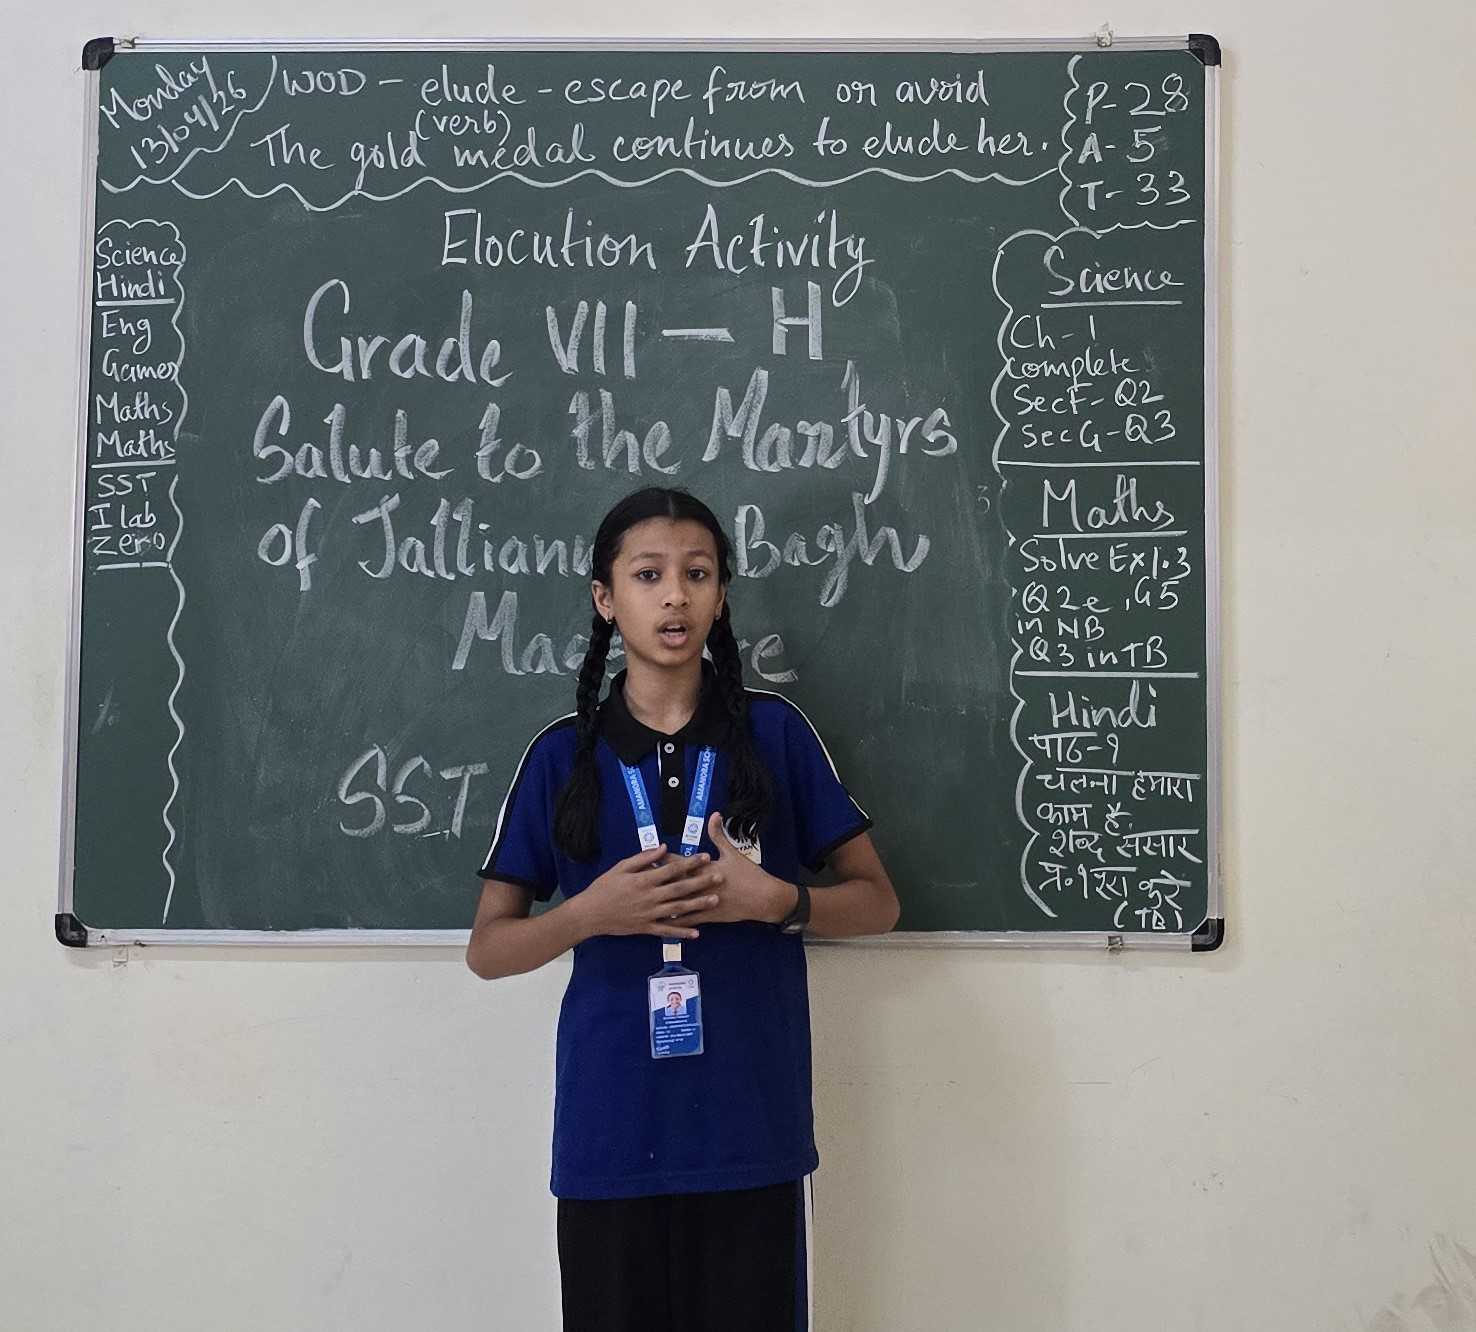 Monday
13/04/26
WOD - elude - escape from or avoid
(verb)
The gold medal continues to elude her.
P- 28
A- 5
T- 33
Science
Hindi
Eng
Games
Maths
Maths
SST
I lab
Zero
Elocution Activity
Grade VII - H
Salute to the Martyrs
of Bagh
SST
Science
Ch-1
complete
Sec F- Q2
Sec G- Q3
Maths
Solve Ex 1.3
Q2e, Q5
in NB
Q3 in TB
Hindi
पाठ-१
चलना हमारा
काम है.
शब्द संसार
प्र.१
(TB)
AMANORA
AMANORA SCH